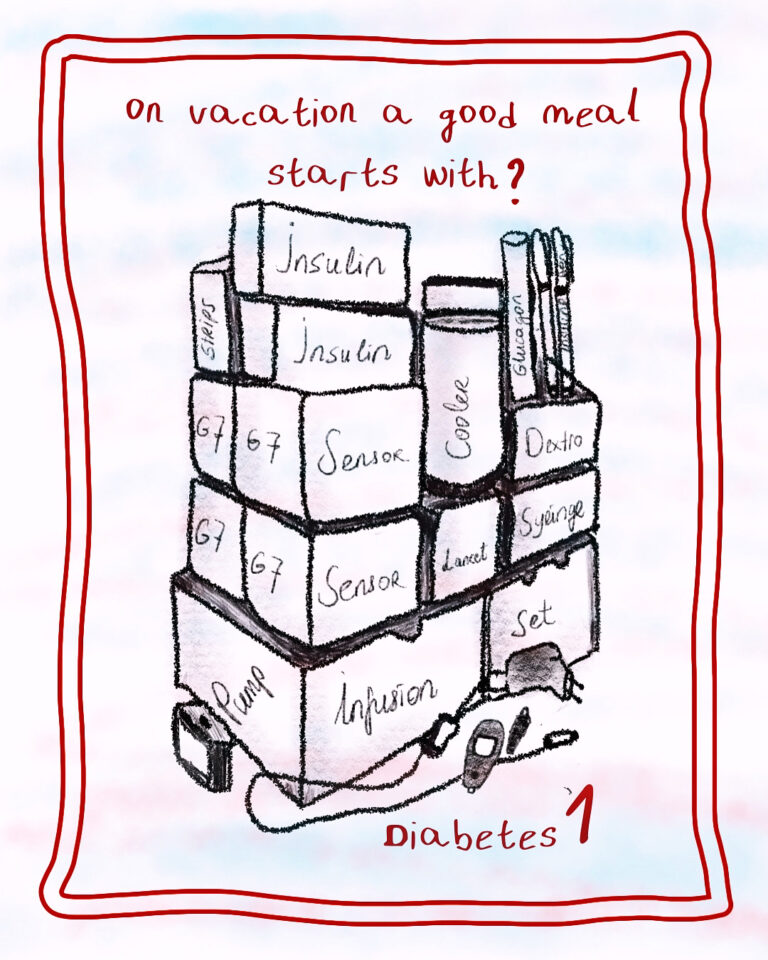 on vacation a good meal
starts with?
insulin
Strips
insulin
Glucagon
Cooler
G7 G7 Sensor
Dextro
Syringe
G7 G7 Sensor
Lancet
Set
Pump
infusion
Diabetes 1